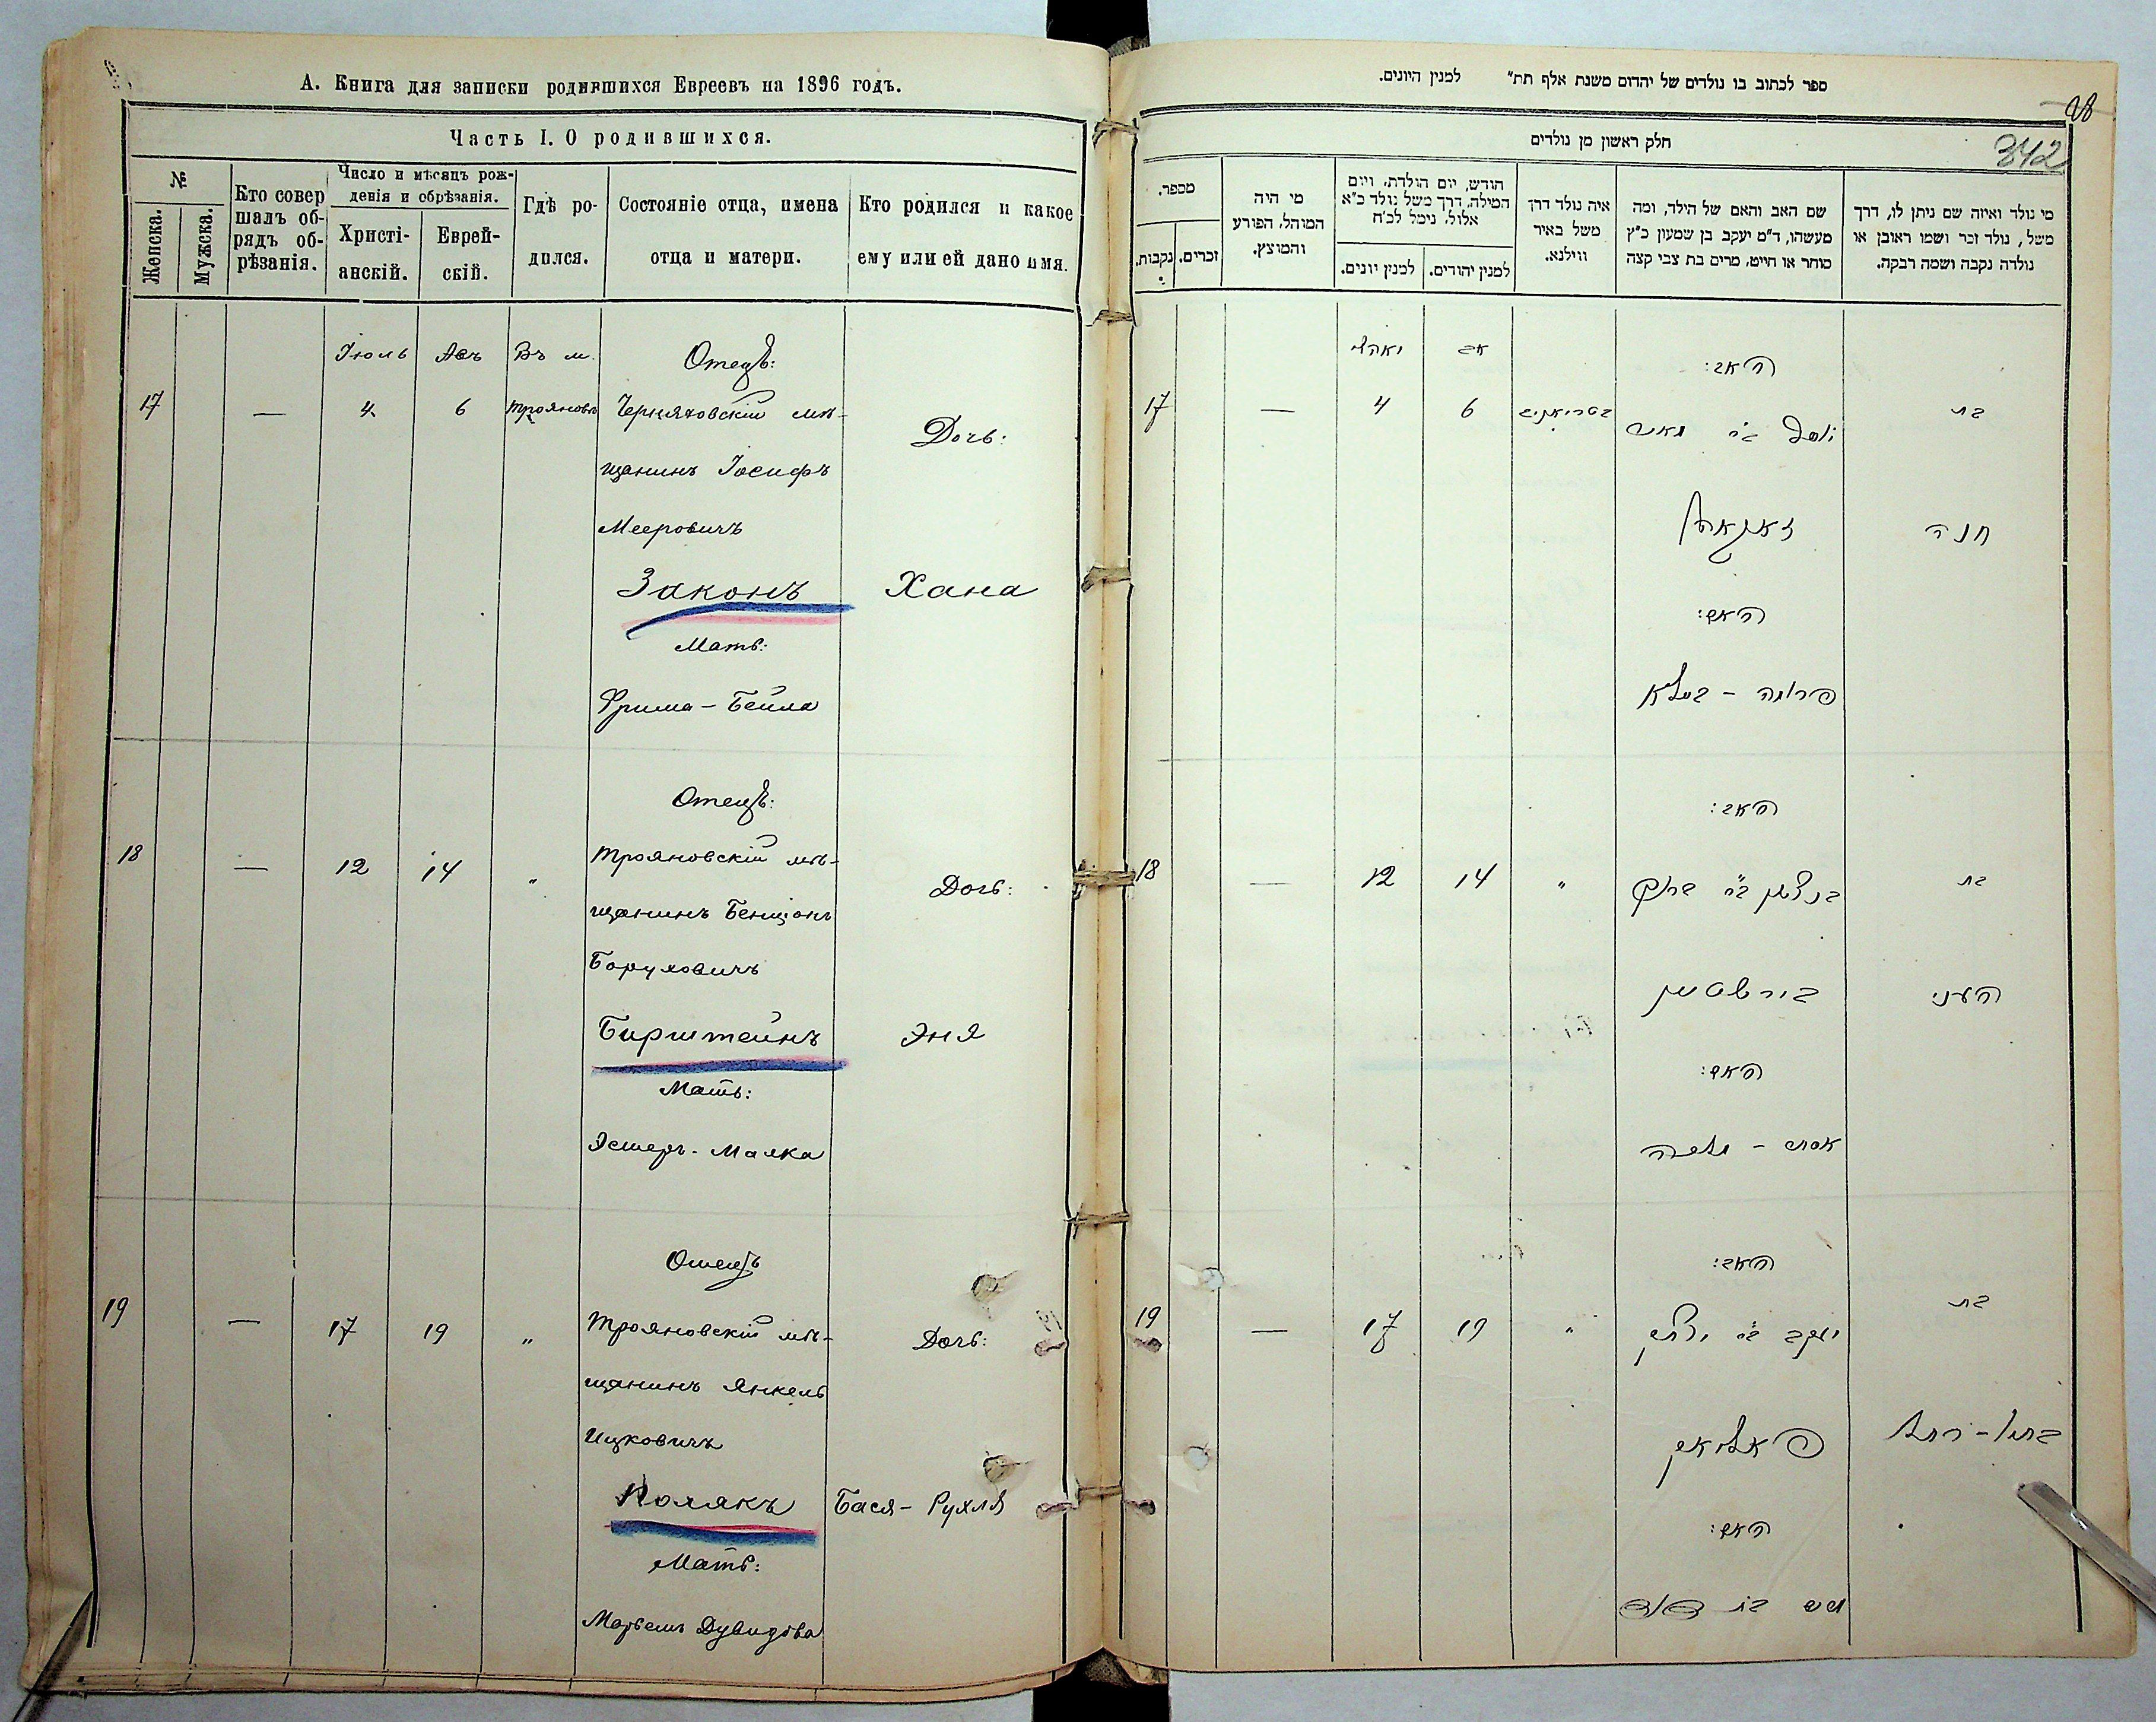 А. Книга для записки родившихся Евреевъ на 1896 годъ.
Часть I. О родившихся.
№
Женска.
Мужска.
Кто совер
шалъ об-
рядъ об-
рѣзанія.
Число и мѣсяцъ рож-
денія и обрѣзанія.
Христі-
анскій.
Еврей-
скій.
Гдѣ ро-
дился.
Состояніе отца, имена
отца и матери.
Кто родился и какое
ему или ей дано имя.
Іюль Авъ Въ м. Отецъ:
17 — 4 6 Трояновѣ Черняховскій мѣ-
Дочь:
щанинъ Іосифъ
Мееровичъ
Законъ Хана
Мать:
Фрима - Бейла
Отецъ:
18 — 12 14 " Трояновскій мѣ-
Дочь:
щанинъ Бенціонъ
Боруховичъ
Бирштейнъ Эня
Мать:
Эстеръ - Малка
Отецъ
19 — 17 19 " Трояновскій мѣ-
Дочь:
щанинъ Янкель
Ицковичъ
Полякъ Бася - Рухля
Мать:
Марьемъ Дувидова
ספר לכתוב בו נולדים של יהדום משנת אלף תת״ למנין היונים.
28
342
חלק ראשון מן נולדים
מי נולד ואיזה שם ניתן לו, דרך
משל, נולד זכר ושמו ראובן או
נולדה נקבה ושמה רבקה.
שם האב והאם של הילד, ומה
מעשהו, ד״מ יעקב בן שמעון כ״ץ
סוחר או חייט, מרים בת צבי קצה
איה נולד דרך
משל באיר
ווילנא.
חודש, יום הולדת, ויום
המילה, דרך משל נולד כ״א
אלול, נימל לכ״ח
למנין יהודים.
למנין יונים.
מי היה
המוהל, הפורע
והמוצץ.
מספר.
זכרים.
נקבות.
האב: אב
בת יוסף ב״ר מאיר 6 4 — 17
חנה זאקאן
האם:
פרומה - ביילא
האב:
בת בנציון ב״ר ברוך " 14 12 — 18
בירשטיין
האם:
אסתר - מלכה
האב:
בת יעקב ב״ר יצחק " 19 17 — 19
פאליאק
האם: